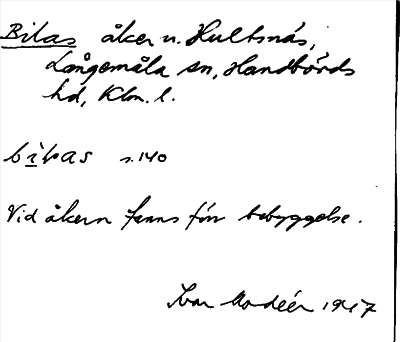 Bilas åker u. Hultsnäs,
Långemåla sn, Handbörds
hd, Klm. l.
bilas s. 140
Vid åkern fanns förr bebyggelse.
Ivar Modéer 1947